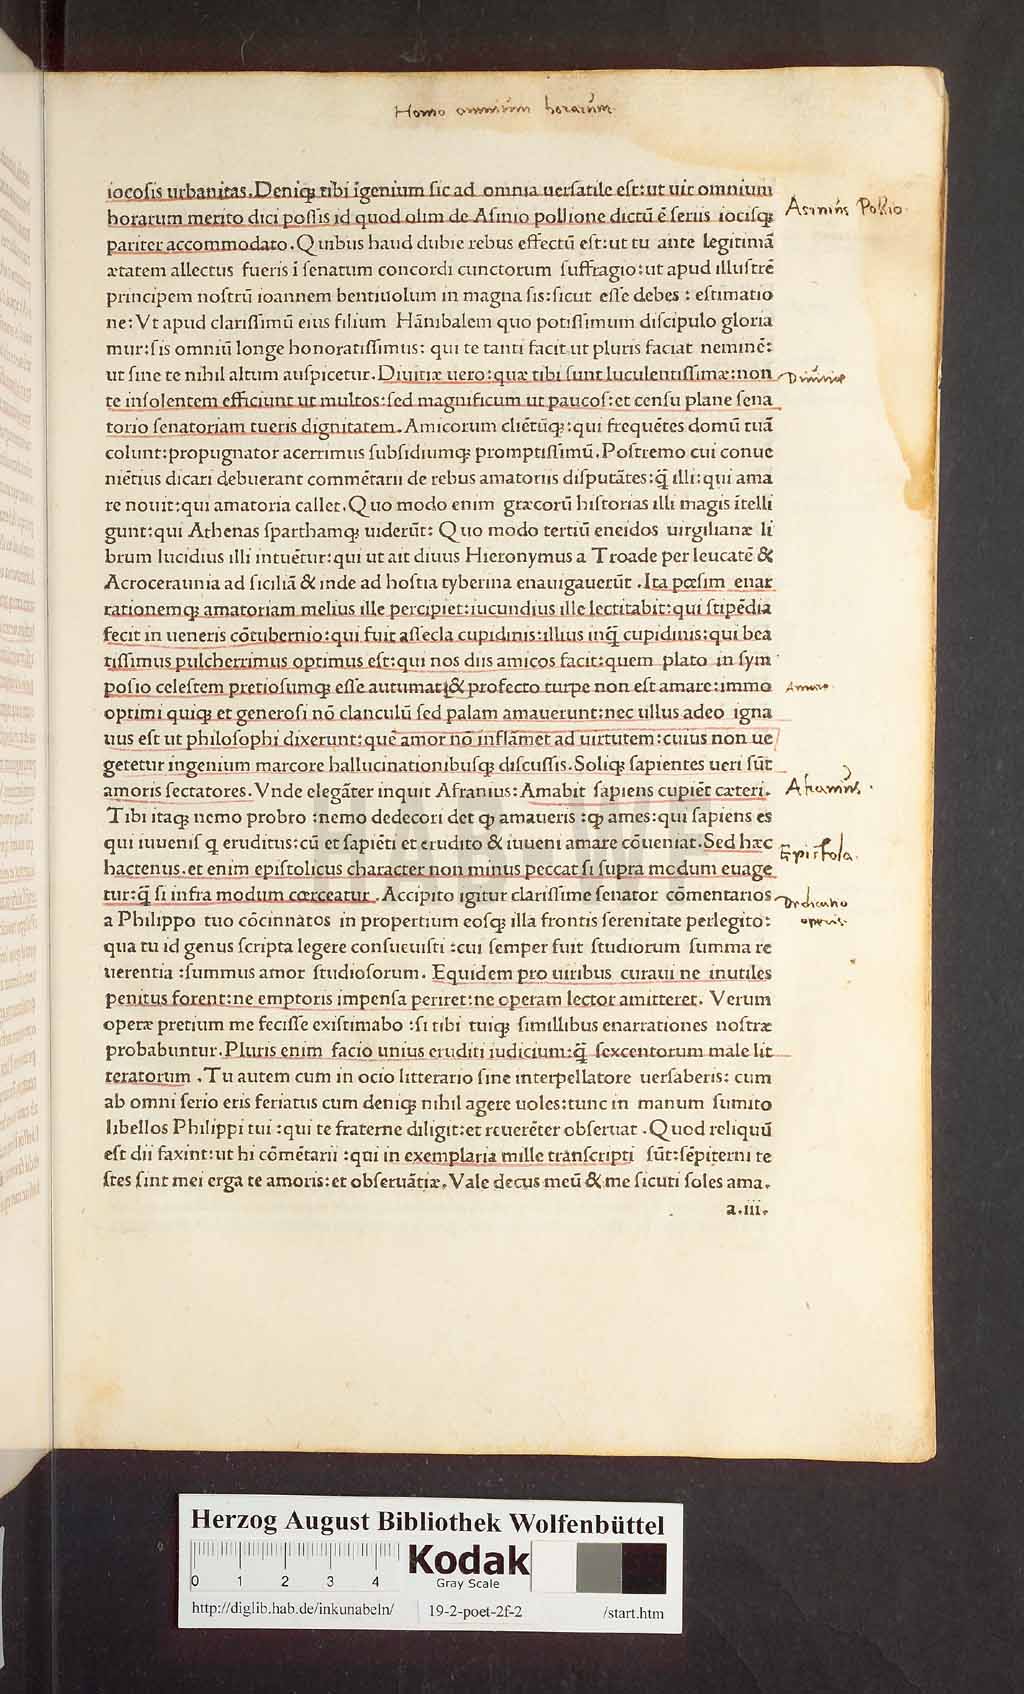 Homo omnium horarum
iocosis urbanitas. Deniqꝫ tibi īgenium sic ad omnia uersatile est: ut uir omnium
horarum merito dici possis id quod olim de Asinio pollione dictū ē seriis iocisqꝫ
Asinius Pollio.
pariter accommodato. Quibus haud dubie rebus effectū est: ut tu ante legitimā
ætatem allectus fueris ī senatum concordi cunctorum suffragio: ut apud illustrē
principem nostrū ioannem bentiuolum in magna sis: sicut esse debes: estimatio
ne: Vt apud clarissimū eius filium Hānibalem quo potissimum discipulo gloria
mur: sis omniū longe honoratissimus: qui te tanti facit ut pluris faciat neminē:
ut sine te nihil altum auspicetur. Diuitiæ uero: quæ tibi sunt luculentissimæ: non
Diuitiæ
te insolentem efficiunt ut multos: sed magnificum ut paucos: et censu plane sena
torio senatoriam tueris dignitatem. Amicorum cliētūqꝫ: qui frequētes domū tuā
colunt: propugnator acerrimus subsidiumqꝫ promptissimū. Postremo cui conue
niētius dicari debuerant commētarii de rebus amatoriis disputātes: q̄ illi: qui ama
re nouit: qui amatoria callet. Quo modo enim græcorū historias illi magis ītelli
gunt: qui Athenas sparthamqꝫ uiderūt: Quo modo tertiū eneidos uirgilianæ li
brum lucidius illi intuētur: qui ut ait diuus Hieronymus a Troade per leucatē &
Acroceraunia ad siciliā & inde ad hostia tyberina enauigauerūt. Ita pœsim enar
rationemqꝫ amatoriam melius ille percipiet: iucundius ille lectitabit: qui stipēdia
fecit in ueneris cōtubernio: qui fuit assecla cupidinis: illius inq̄ cupidinis: qui bea
tissimus pulcherrimus optimus est: qui nos diis amicos facit: quem plato in sym
posio celestem pretiosumqꝫ esse autumat: & profecto turpe non est amare: immo
optimi quiqꝫ et generosi nō clanculū sed palam amauerunt: nec ullus adeo igna
uus est ut philosophi dixerunt: quē amor nō inflāmet ad uirtutem: cuius non ue
getetur ingenium marcore hallucinationibusqꝫ discussis. Soliqꝫ sapientes ueri sūt
amoris sectatores. Vnde elegāter inquit Afranius: Amabit sapiens cupiēt cæteri.
Afranius.
Tibi itaqꝫ nemo probro: nemo dedecori det qꝫ amaueris: qꝫ ames: qui sapiens es
qui iuuenis q eruditus: cū et sapiēti et erudito & iuueni amare cōueniat. Sed hæc
Epistola.
hactenus. et enim epistolicus character non minus peccat si supra modum euage
tur: q̄ si infra modum cœrceatur. Accipito igitur clarissime senator cōmentarios
Dedicatio
operis.
a Philippo tuo cōcinnatos in propertium eosqꝫ illa frontis serenitate perlegito:
qua tu id genus scripta legere consueuisti: cui semper fuit studiorum summa re
uerentia: summus amor studiosorum. Equidem pro uiribus curaui ne inutiles
penitus forent: ne emptoris impensa periret: ne operam lector amitteret. Verum
operæ pretium me fecisse existimabo: si tibi tuiqꝫ simillibus enarrationes nostræ
probabuntur. Pluris enim facio unius eruditi iudicium: q̄ sexcentorum male lit
teratorum. Tu autem cum in ocio litterario sine interpellatore uersaberis: cum
ab omni serio eris feriatus cum deniqꝫ nihil agere uoles: tunc in manum sumito
libellos Philippi tui: qui te fraterne diligit: et reuerēter obseruat. Quod reliquū
est dii faxint: ut hi cōmētarii: qui in exemplaria mille transcripti sūt: sēpiterni te
stes sint mei erga te amoris: et obseruātiæ. Vale decus meū & me sicuti soles ama.
a.iii.
HAB WF
Herzog August Bibliothek Wolfenbüttel
0 1 2 3 4
Kodak
Gray Scale
http://diglib.hab.de/inkunabeln/ 19-2-poet-2f-2 /start.htm